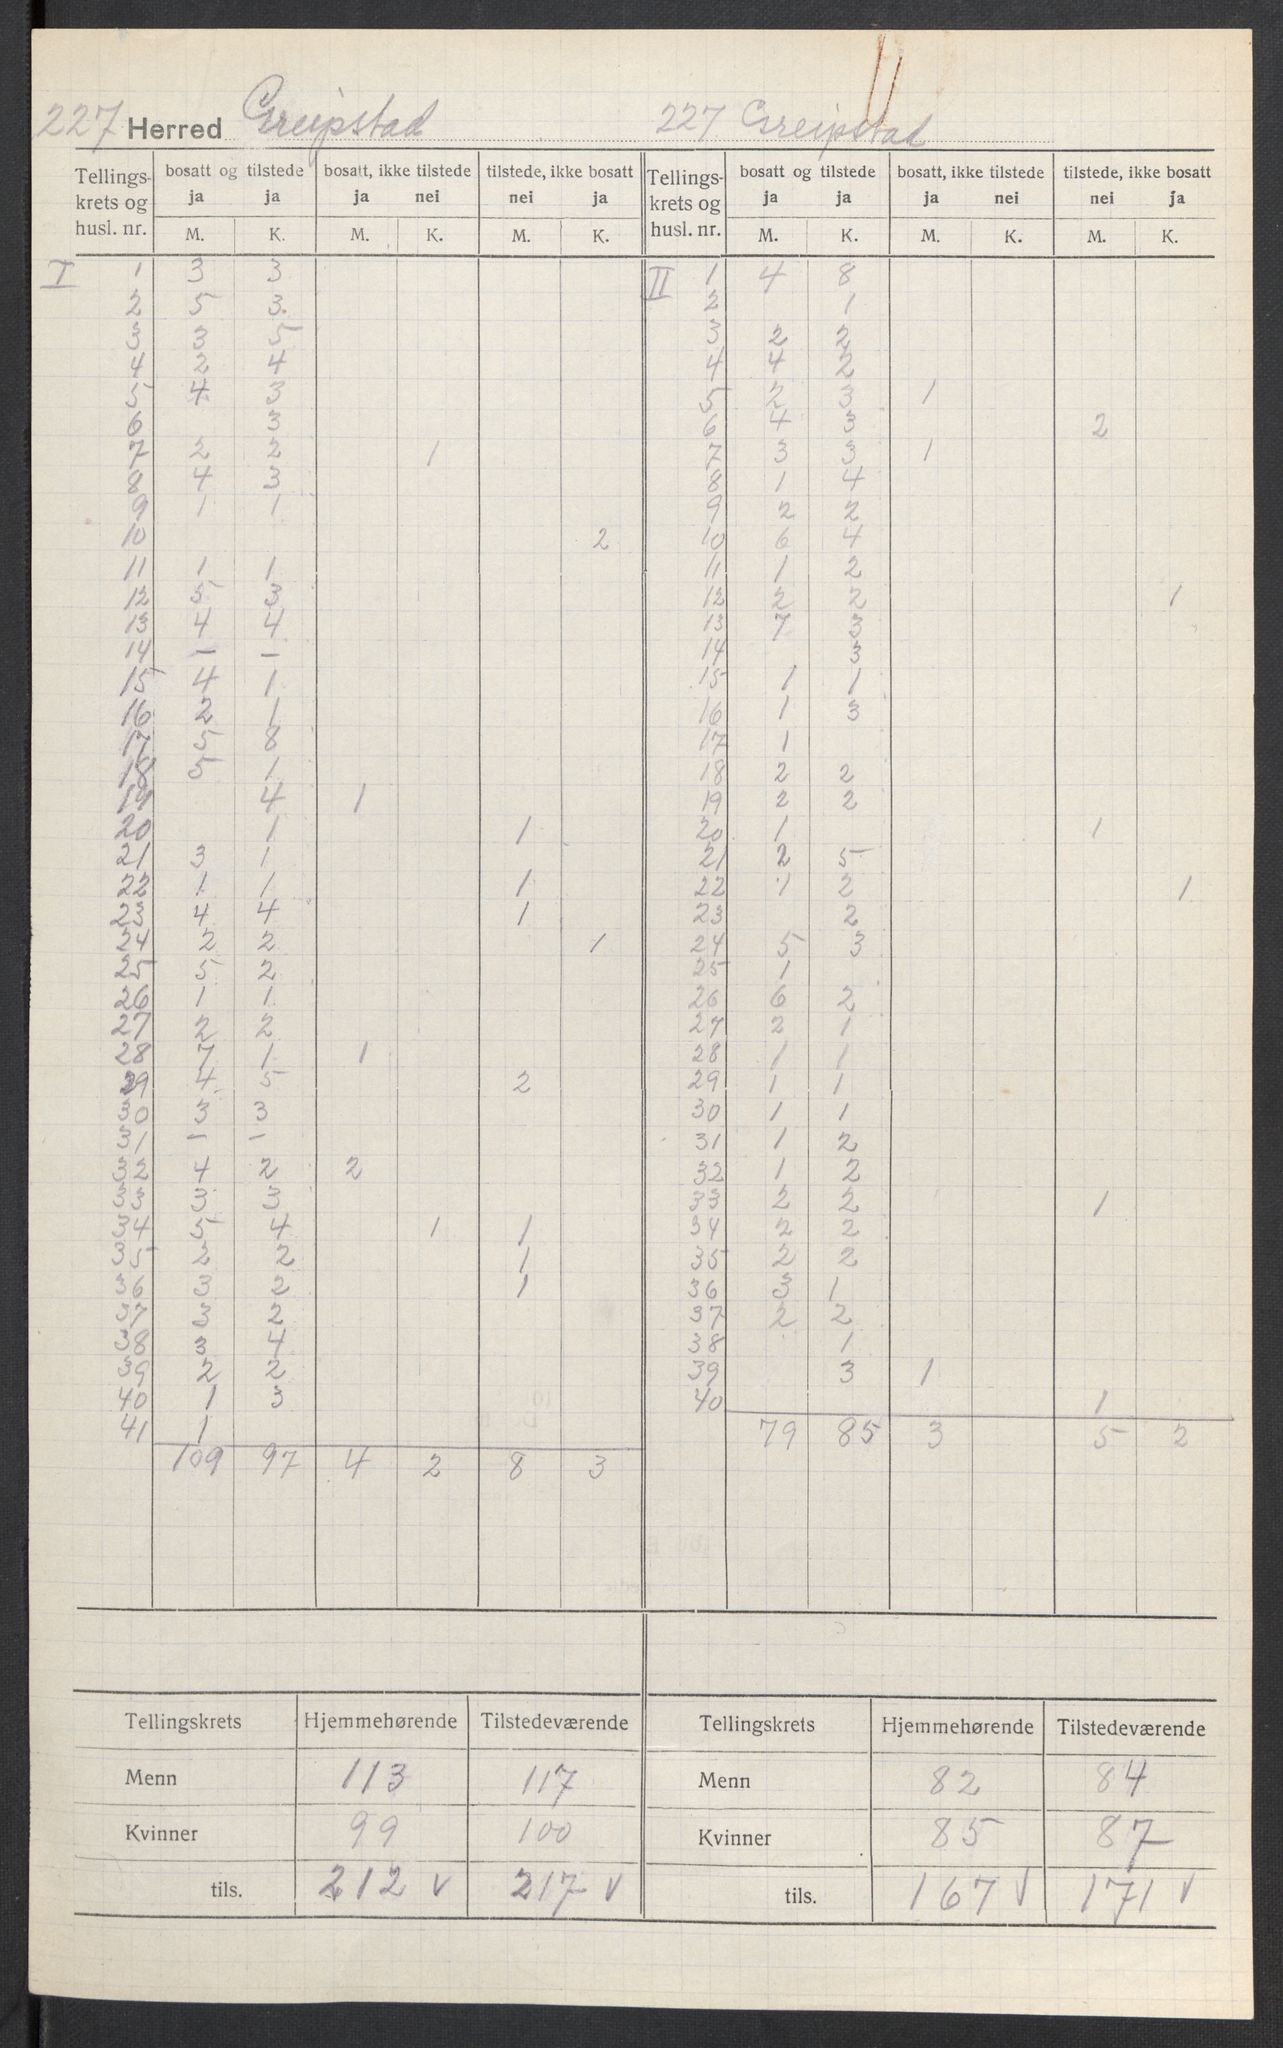 227 Herred Greipstad 227 Greipstad
Tellings- krets og husl. nr. | bosatt og tilstede ja ja | bosatt, ikke tilstede ja nei | tilstede, ikke bosatt nei ja | Tellings- krets og husl. nr. | bosatt og tilstede ja ja | bosatt, ikke tilstede ja nei | tilstede, ikke bosatt nei ja
M. K. M. K. M. K. M. K. M. K. M. K.
I 1 3 3
2 5 3
3 3 5
4 2 4
5 4 3
6 3
7 2 2 1
8 4 3
9 1 1
10 2
11 1 1
12 5 3
13 4 4
14 – –
15 4 1
16 2 1
17 5 8
18 5 1
19 4 1
20 1 1
21 3 1
22 1 1 1
23 4 4 1
24 2 2 1
25 5 2
26 1 1
27 2 2
28 7 1 1
29 4 5 2
30 3 3
31 – –
32 4 2 2
33 3 3
34 5 4 1 1
35 2 2 1
36 3 2 1
37 3 2
38 3 4
39 2 2
40 1 3
41 1
109 97 4 2 8 3
II 1 4 8
2 1
3 2 2
4 4 2
5 2 3 1
6 4 3 2
7 3 3 1
8 1 4
9 2 2
10 6 4
11 1 2
12 2 2 1
13 7 3
14 3
15 1 1
16 1 3
17 1
18 2 2
19 2 2
20 1 1
21 2 5
22 1 2 1
23 2
24 5 3
25 1
26 6 2
27 2 1
28 1 1
29 1 1
30 1 1
31 1 2
32 1 2
33 2 2 1
34 2 2
35 2 2
36 3 1
37 2 2
38 1
39 3 1
40 1
79 85 3 5 2
Tellingskrets Hjemmehørende Tilstedeværende
Menn 113 117
Kvinner 99 100
tils. 212 v 217 v
Tellingskrets Hjemmehørende Tilstedeværende
Menn 82 84
Kvinner 85 87
tils. 167 v 171 v